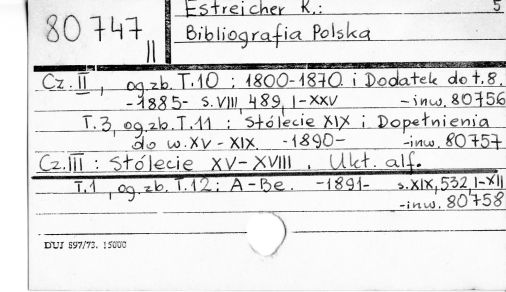 Estreicher K.: 5
80 747 II
Bibliografia Polska
Cz. II, og.zb. T.10 : 1800-1870. i Dodatek do t.8.
-1885- s.VIII, 489, I-XXV -inw. 80756
T.3, og.zb. T.11 : Stólecie XIX i Dopełnienia
do w. XV - XIX. -1890- -inw. 80757
Cz. III : Stólecie XV-XVIII. Ukł. alf.
T.1, og.zb. T.12: A-Be. -1891- s.XIX, 532, I-XII
-inw. 80758
DUJ 897/73. 15000